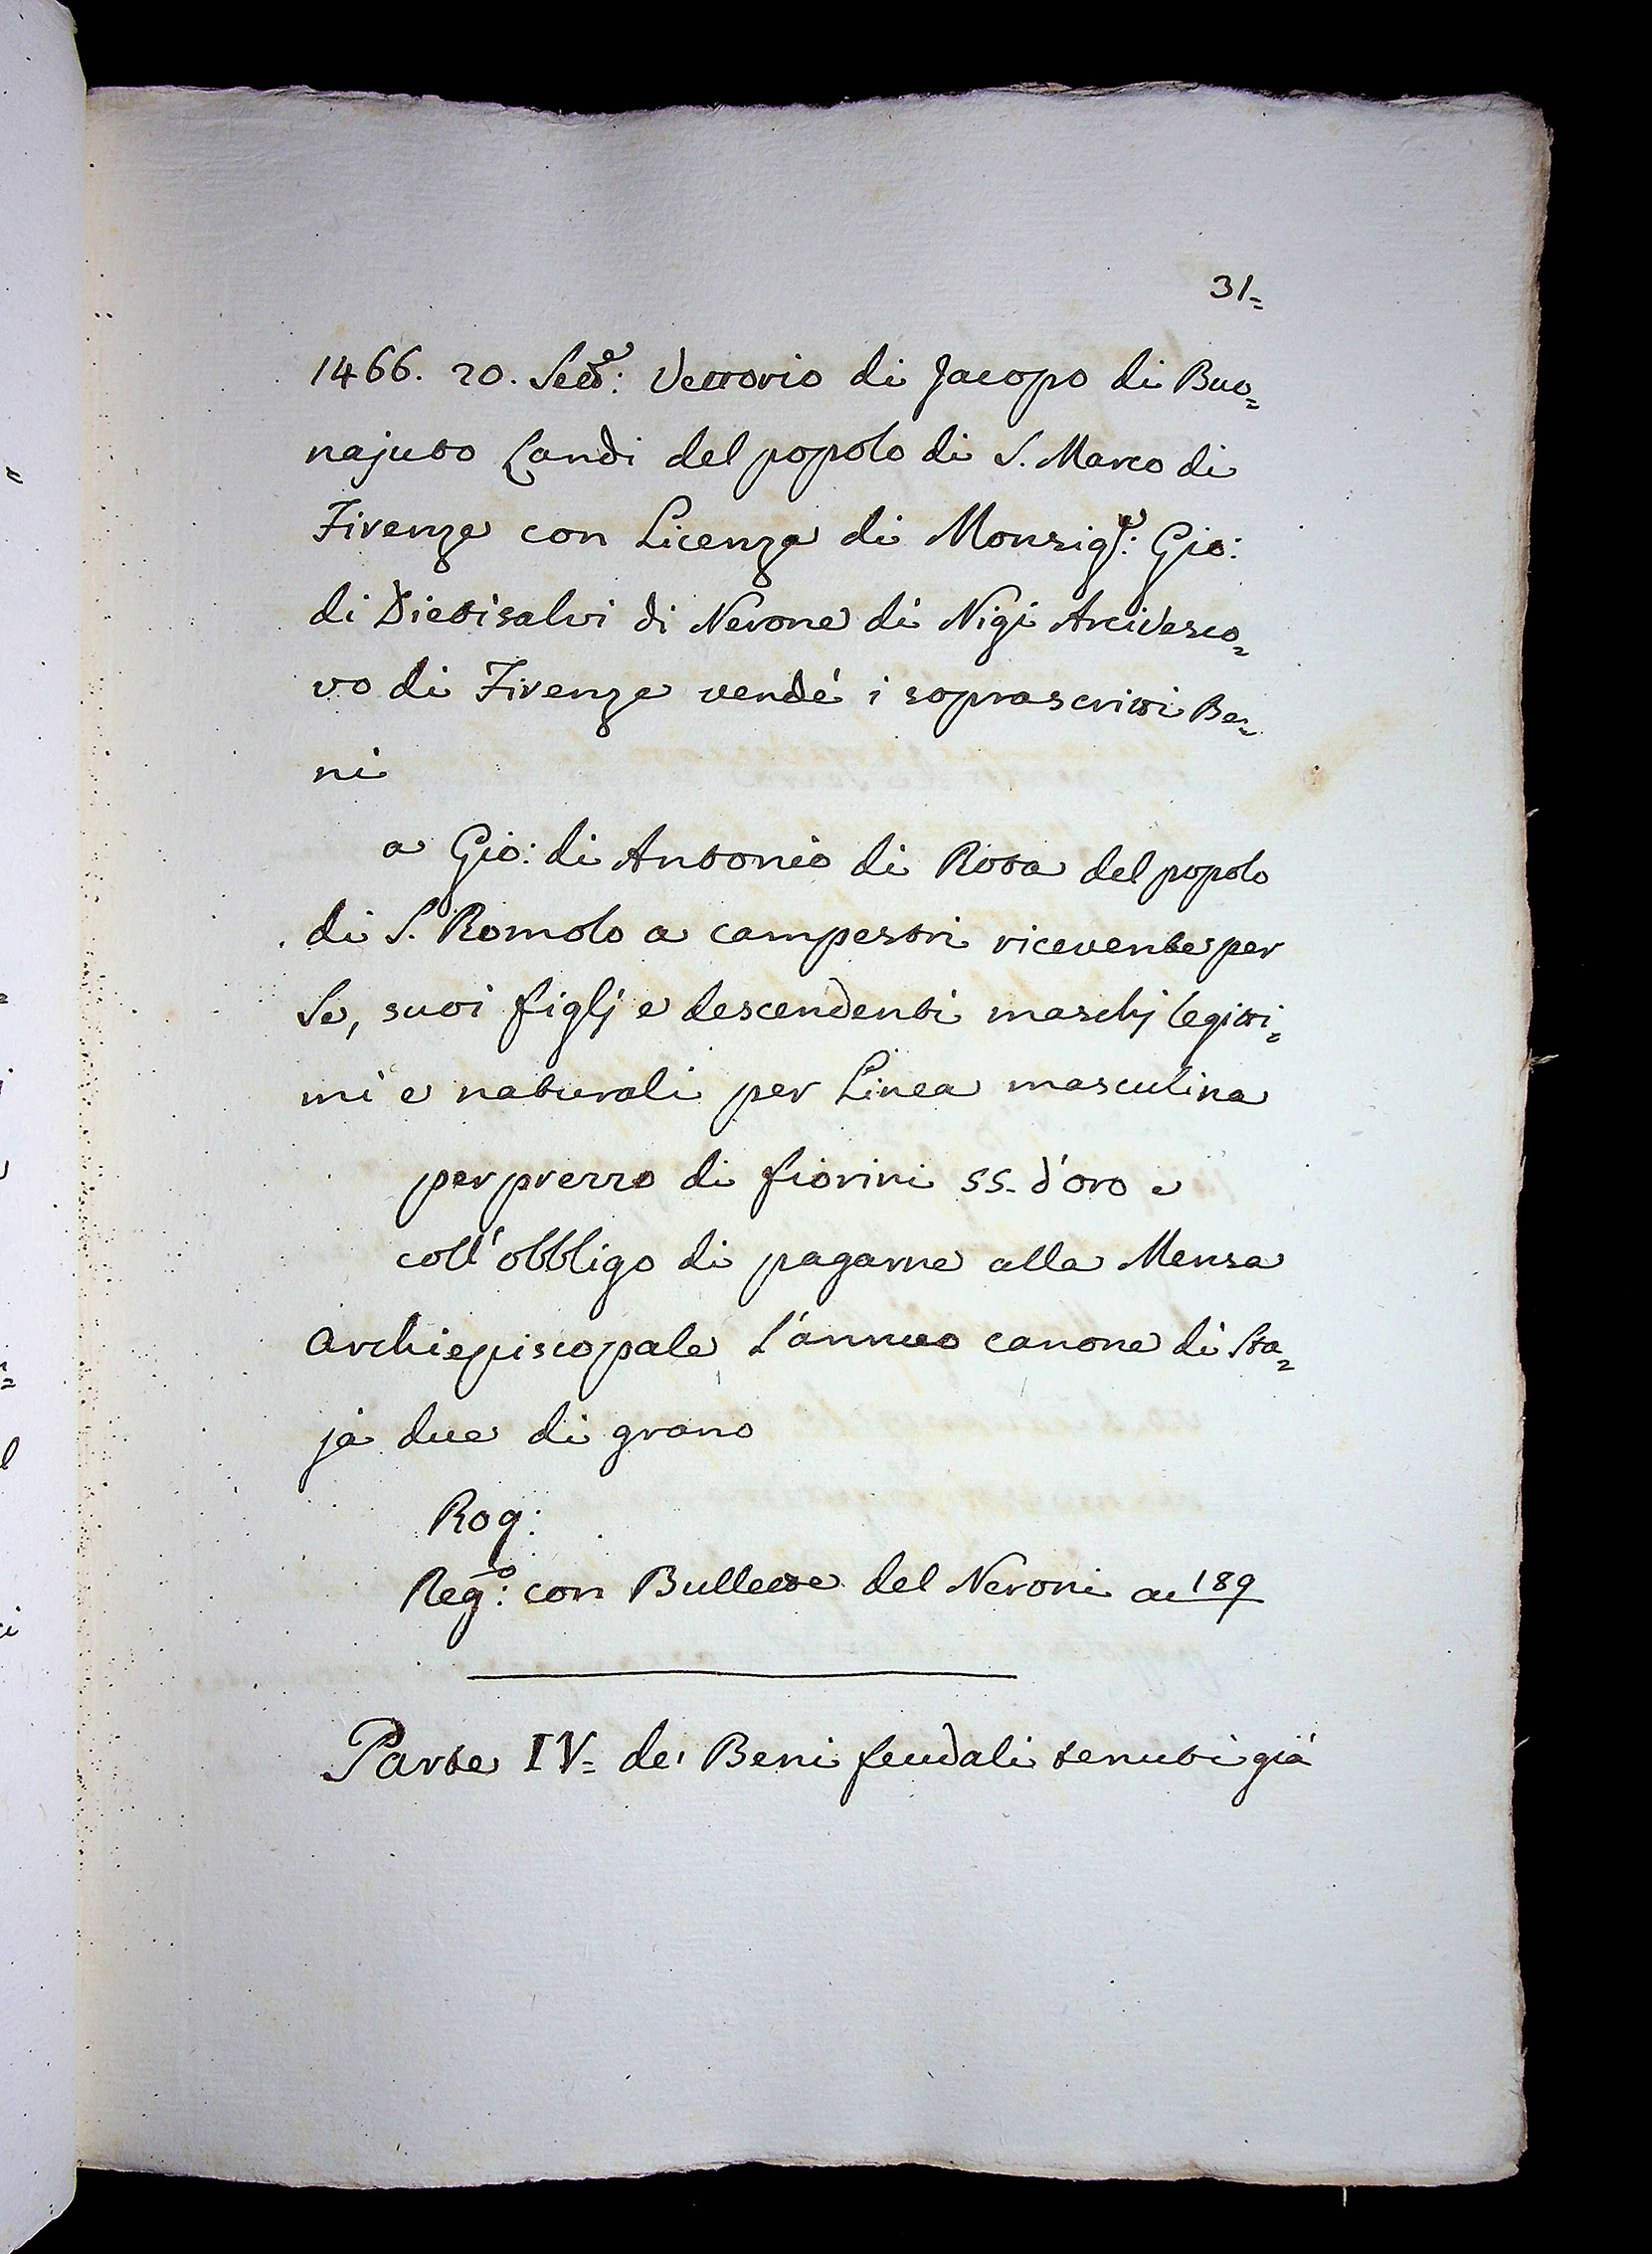 31=
1466. 20. Sett.e: Vettorio di Jacopo di Buo=
najuto Landi del popolo di S. Marco di
Firenze con Licenza di Monsig.e: Gio:
di Dietisalvi di Nerone di Nigi Arcivesco=
vo di Firenze vendé i soprascritti Be=
ni
a Gio: di Antonio di Rosa del popolo
di S. Romolo a campestri ricevente per
Se, suoi figlj e descendenti maschj legitti=
mi e naturali per Linea masculina
per prezzo di fiorini 55. d'oro e
coll'obbligo di pagarne alla Mensa
Archiepiscopale l'annuo canone di Sta=
ja due di grano
Rog:
Reg.o: con Bullette del Neroni a 189
Parte IV= de' Beni feudali tenuti già